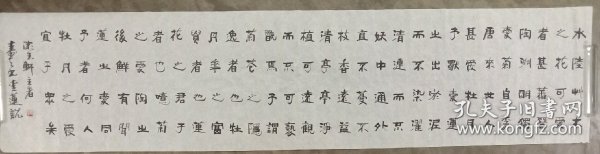 水陸艸木
之花可愛
者甚蕃晉
陶淵明獨
愛菊自李
唐來世人
甚愛牡丹
予獨愛蓮
之出淤泥
而不染濯
清漣而不
妖中通外
直不蔓不
枝香遠益
清亭亭淨
植可遠觀
而不可褻
玩焉予謂
菊花之隱
逸者也牡
丹花之富
貴者也蓮
花之君子
者也噫菊
之愛陶
後鮮有聞
蓮之愛同
予者何人
牡丹之愛
宜乎眾矣
孔夫子旧书网